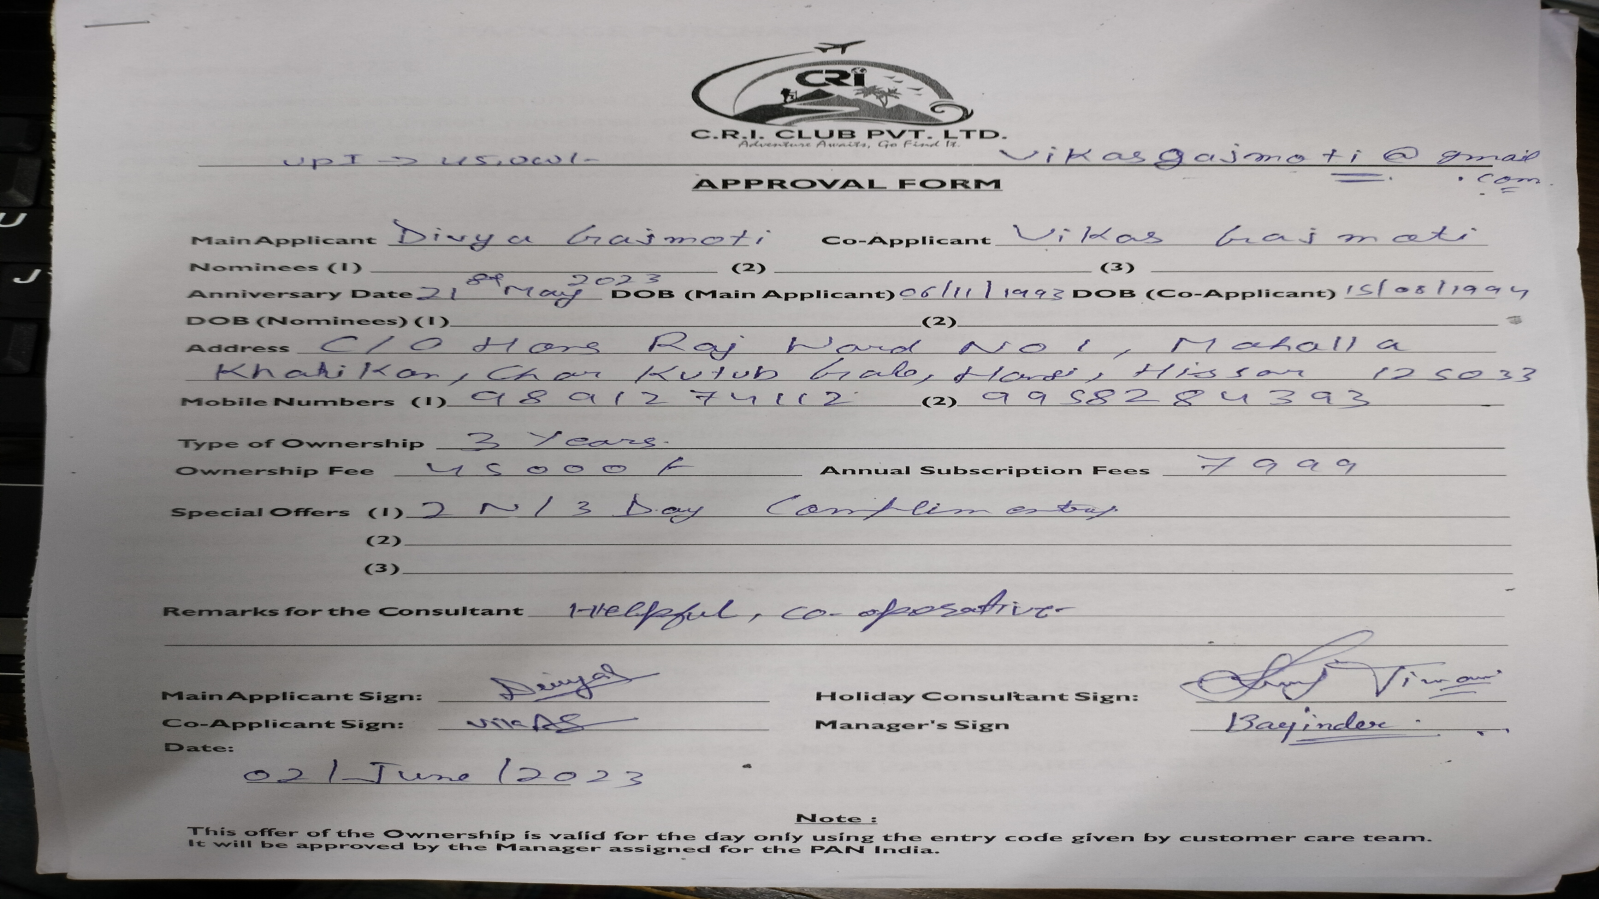 CRI
C.R.I. CLUB PVT. LTD.
Adventure Awaits, Go Find It.
UPI → 45,000/- vikasgajmoti@gmail.com
APPROVAL FORM
Main Applicant Divya Gajmoti Co-Applicant Vikas Gajmoti
Nominees (1) (2) (3)
Anniversary Date 21st May 2023 DOB (Main Applicant) 06/11/1993 DOB (Co-Applicant) 15/08/1994
DOB (Nominees) (1) (2)
Address C/O Hans Raj Ward No 1, Mahalla
Khatikan, Char Kutub Gate, Hansi, Hissar 125033
Mobile Numbers (1) 9891274112 (2) 9958284393
Type of Ownership 3 Years.
Ownership Fee 45000/- Annual Subscription Fees 7999
Special Offers (1) 2N/3 Day Complimentary
(2)
(3)
Remarks for the Consultant Helpful, co-operative
Main Applicant Sign: Divya Holiday Consultant Sign:
Co-Applicant Sign: Vikas Manager's Sign
Date:
02/June/2023
Note :
This offer of the Ownership is valid for the day only using the entry code given by customer care team.
It will be approved by the Manager assigned for the PAN India.